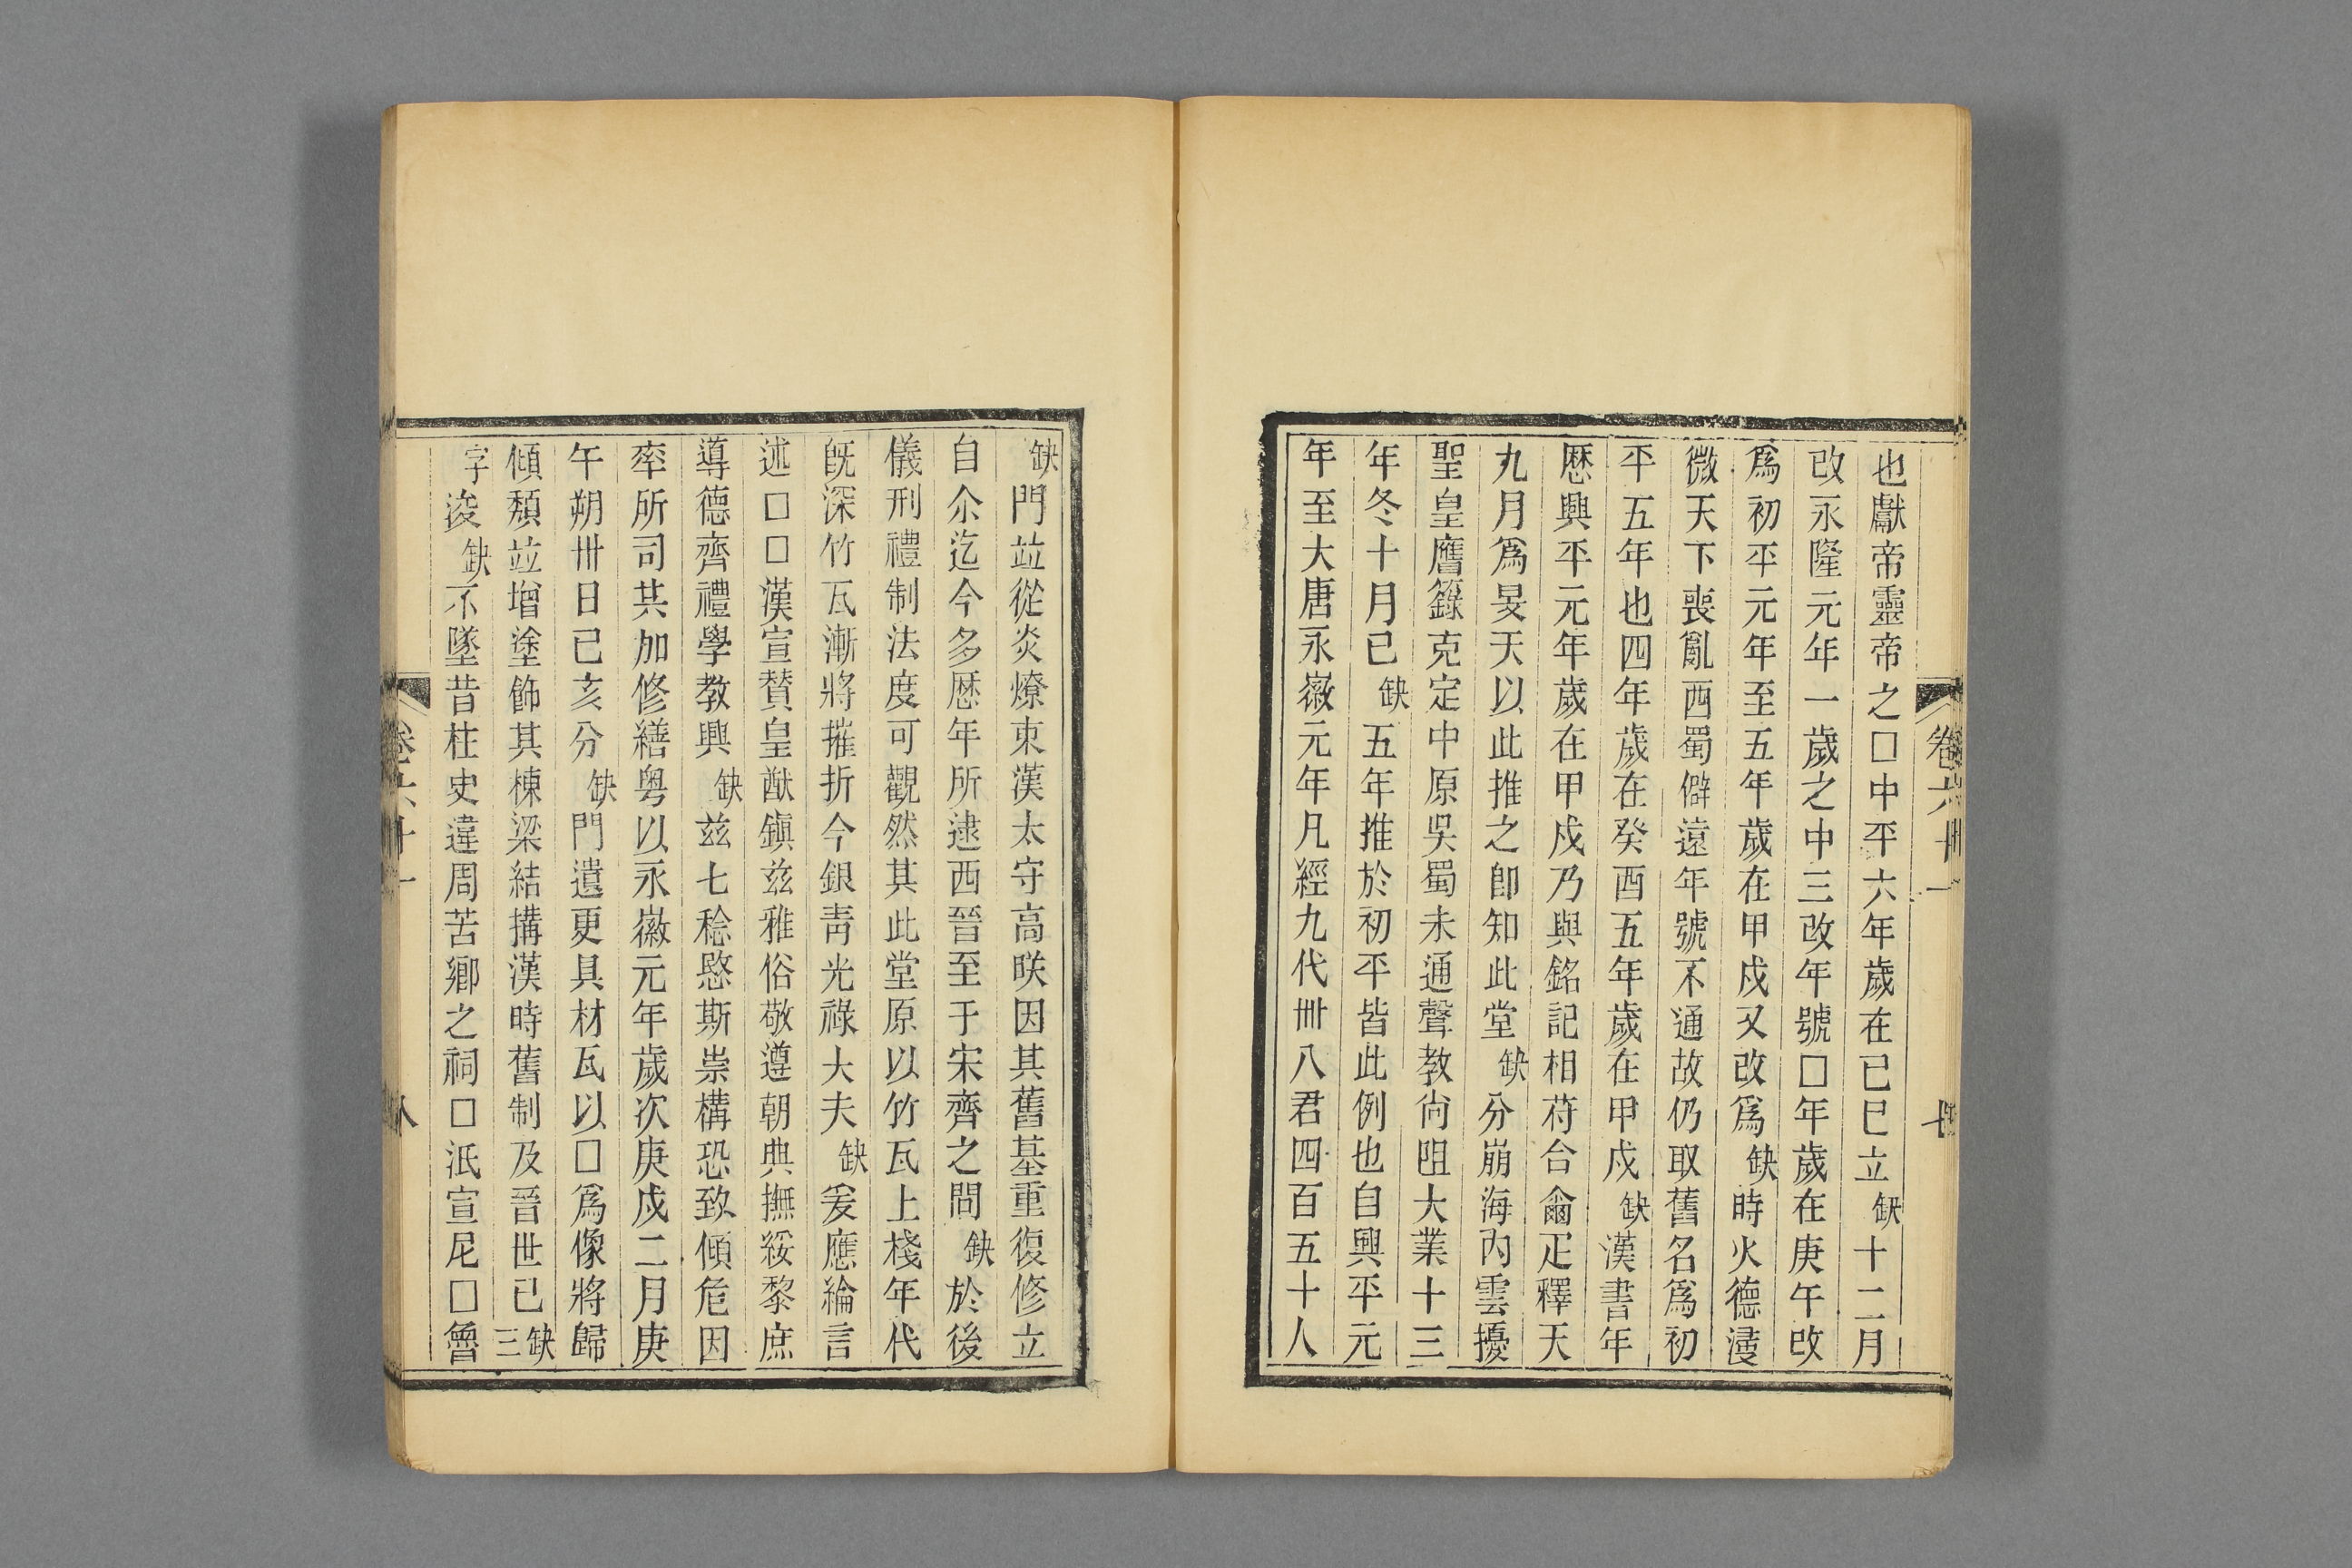 也獻帝靈帝之□中平六年歲在已巳立缺十二月
改永隆元年一歲之中三改年號□年歲在庚午改
爲初平元年至五年歲在甲戍又改爲缺時火德寖
微天下喪亂西蜀僻遠年號不通故仍取舊名爲初
平五年也四年歲在癸酉五年歲在甲戍缺漢書年
歷興平元年歲在甲戍乃與銘記相苻合爾疋釋天
九月爲旻天以此推之卽知此堂缺分崩海內雲擾
聖皇膺籙克定中原吳蜀未通聲教尙阻大業十三
年冬十月已缺五年推於初平皆此例也自興平元
年至大唐永徽元年凡經九代卌八君四百五十人
卷六十一
七
缺門竝從炎燎東漢太守高昳因其舊基重復修立
自尒迄今多歷年所逮西晉至于宋齊之間缺於後
儀刑禮制法度可觀然其此堂原以竹瓦上棧年代
旣深竹瓦漸將摧折今銀靑光祿大夫缺爰應綸言
述□□漢宣賛皇猷鎭兹雅俗敬遵朝典撫綏黎庶
導德齊禮學教興缺兹七稔愍斯崇構恐致傾危因
率所司共加修繕粤以永徽元年歲次庚戍二月庚
午朔卌日已亥分缺門遺更具材瓦以□爲像將歸
傾頹竝增塗飾其棟梁結搆漢時舊制及晉世已缺三
字浚缺不墜昔柱史違周苦鄕之祠□泜宣尼□魯
卷六十一
八